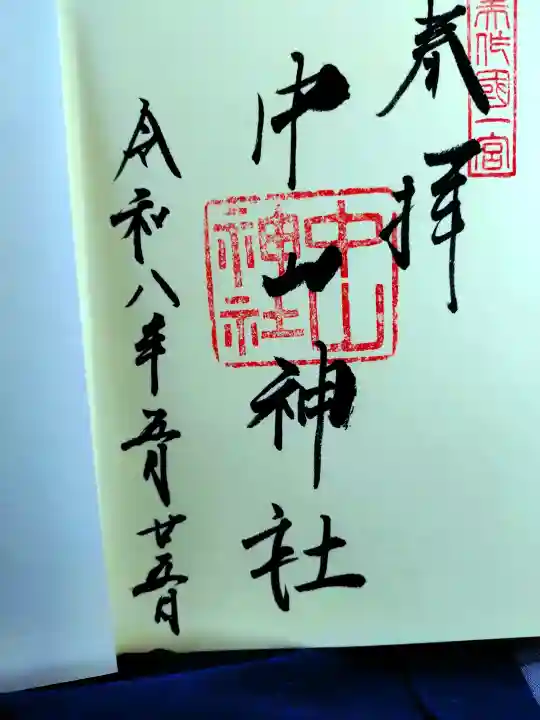 美作國一宮
奉拝
中山神社
中山神社
令和八年五月廿五日